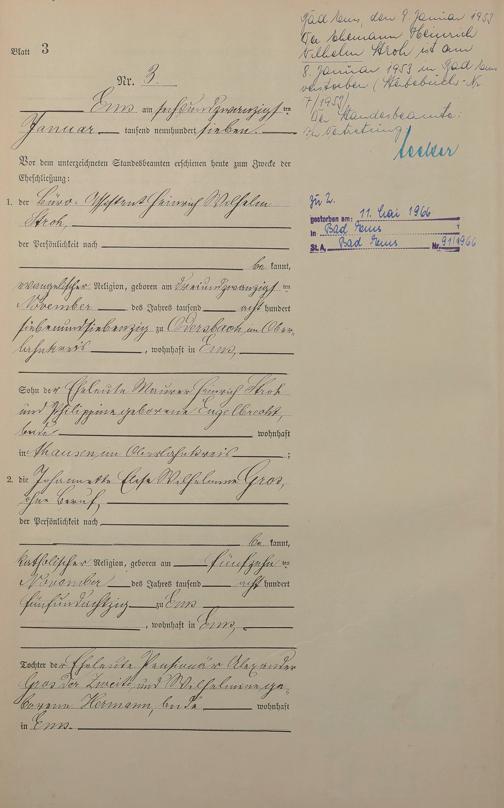 Blatt 3
Nr. 3.
Ems am sechsundzwanzigsten
Januar tausend neunhundert sieben.
Vor dem unterzeichneten Standesbeamten erschienen heute zum Zwecke der
Eheschließung:
1. der Büro-Assistent Heinrich Wilhelm
Stroh,
der Persönlichkeit nach
be kannt,
evangelischer Religion, geboren am dreiundzwanzigsten
November des Jahres tausend acht hundert
siebenundsiebenzig zu Odersbach im Ober-
lahnkreis, wohnhaft in Ems,
Sohn der Eheleute Maurer Heinrich Stroh
und Philippine geborene Engelbrecht,
beide wohnhaft
in im Oberlahnkreis;
2. die Johannette Elise Wilhelmine Gros,
ohne Beruf,
der Persönlichkeit nach
be kannt,
katholischer Religion, geboren am fünfzehnten
November des Jahres tausend acht hundert
fünfundachtzig zu Ems
, wohnhaft in Ems,
Tochter der Eheleute Pensionär Alexander
Gros der Zweite und Wilhelmine ge-
borene Hermann, beide wohnhaft
in Ems.
Bad Ems, den 9. Januar 1953
Der Ehemann Heinrich
Wilhelm Stroh ist am
8. Januar 1953 in Bad Ems
verstorben (Sterbebuch-Nr.
7/1953)
Der Standesbeamte:
In Vertretung
Zu 2.
gestorben am: 11. Mai 1966
in Bad Ems
St.A. Bad Ems Nr. 91/1966